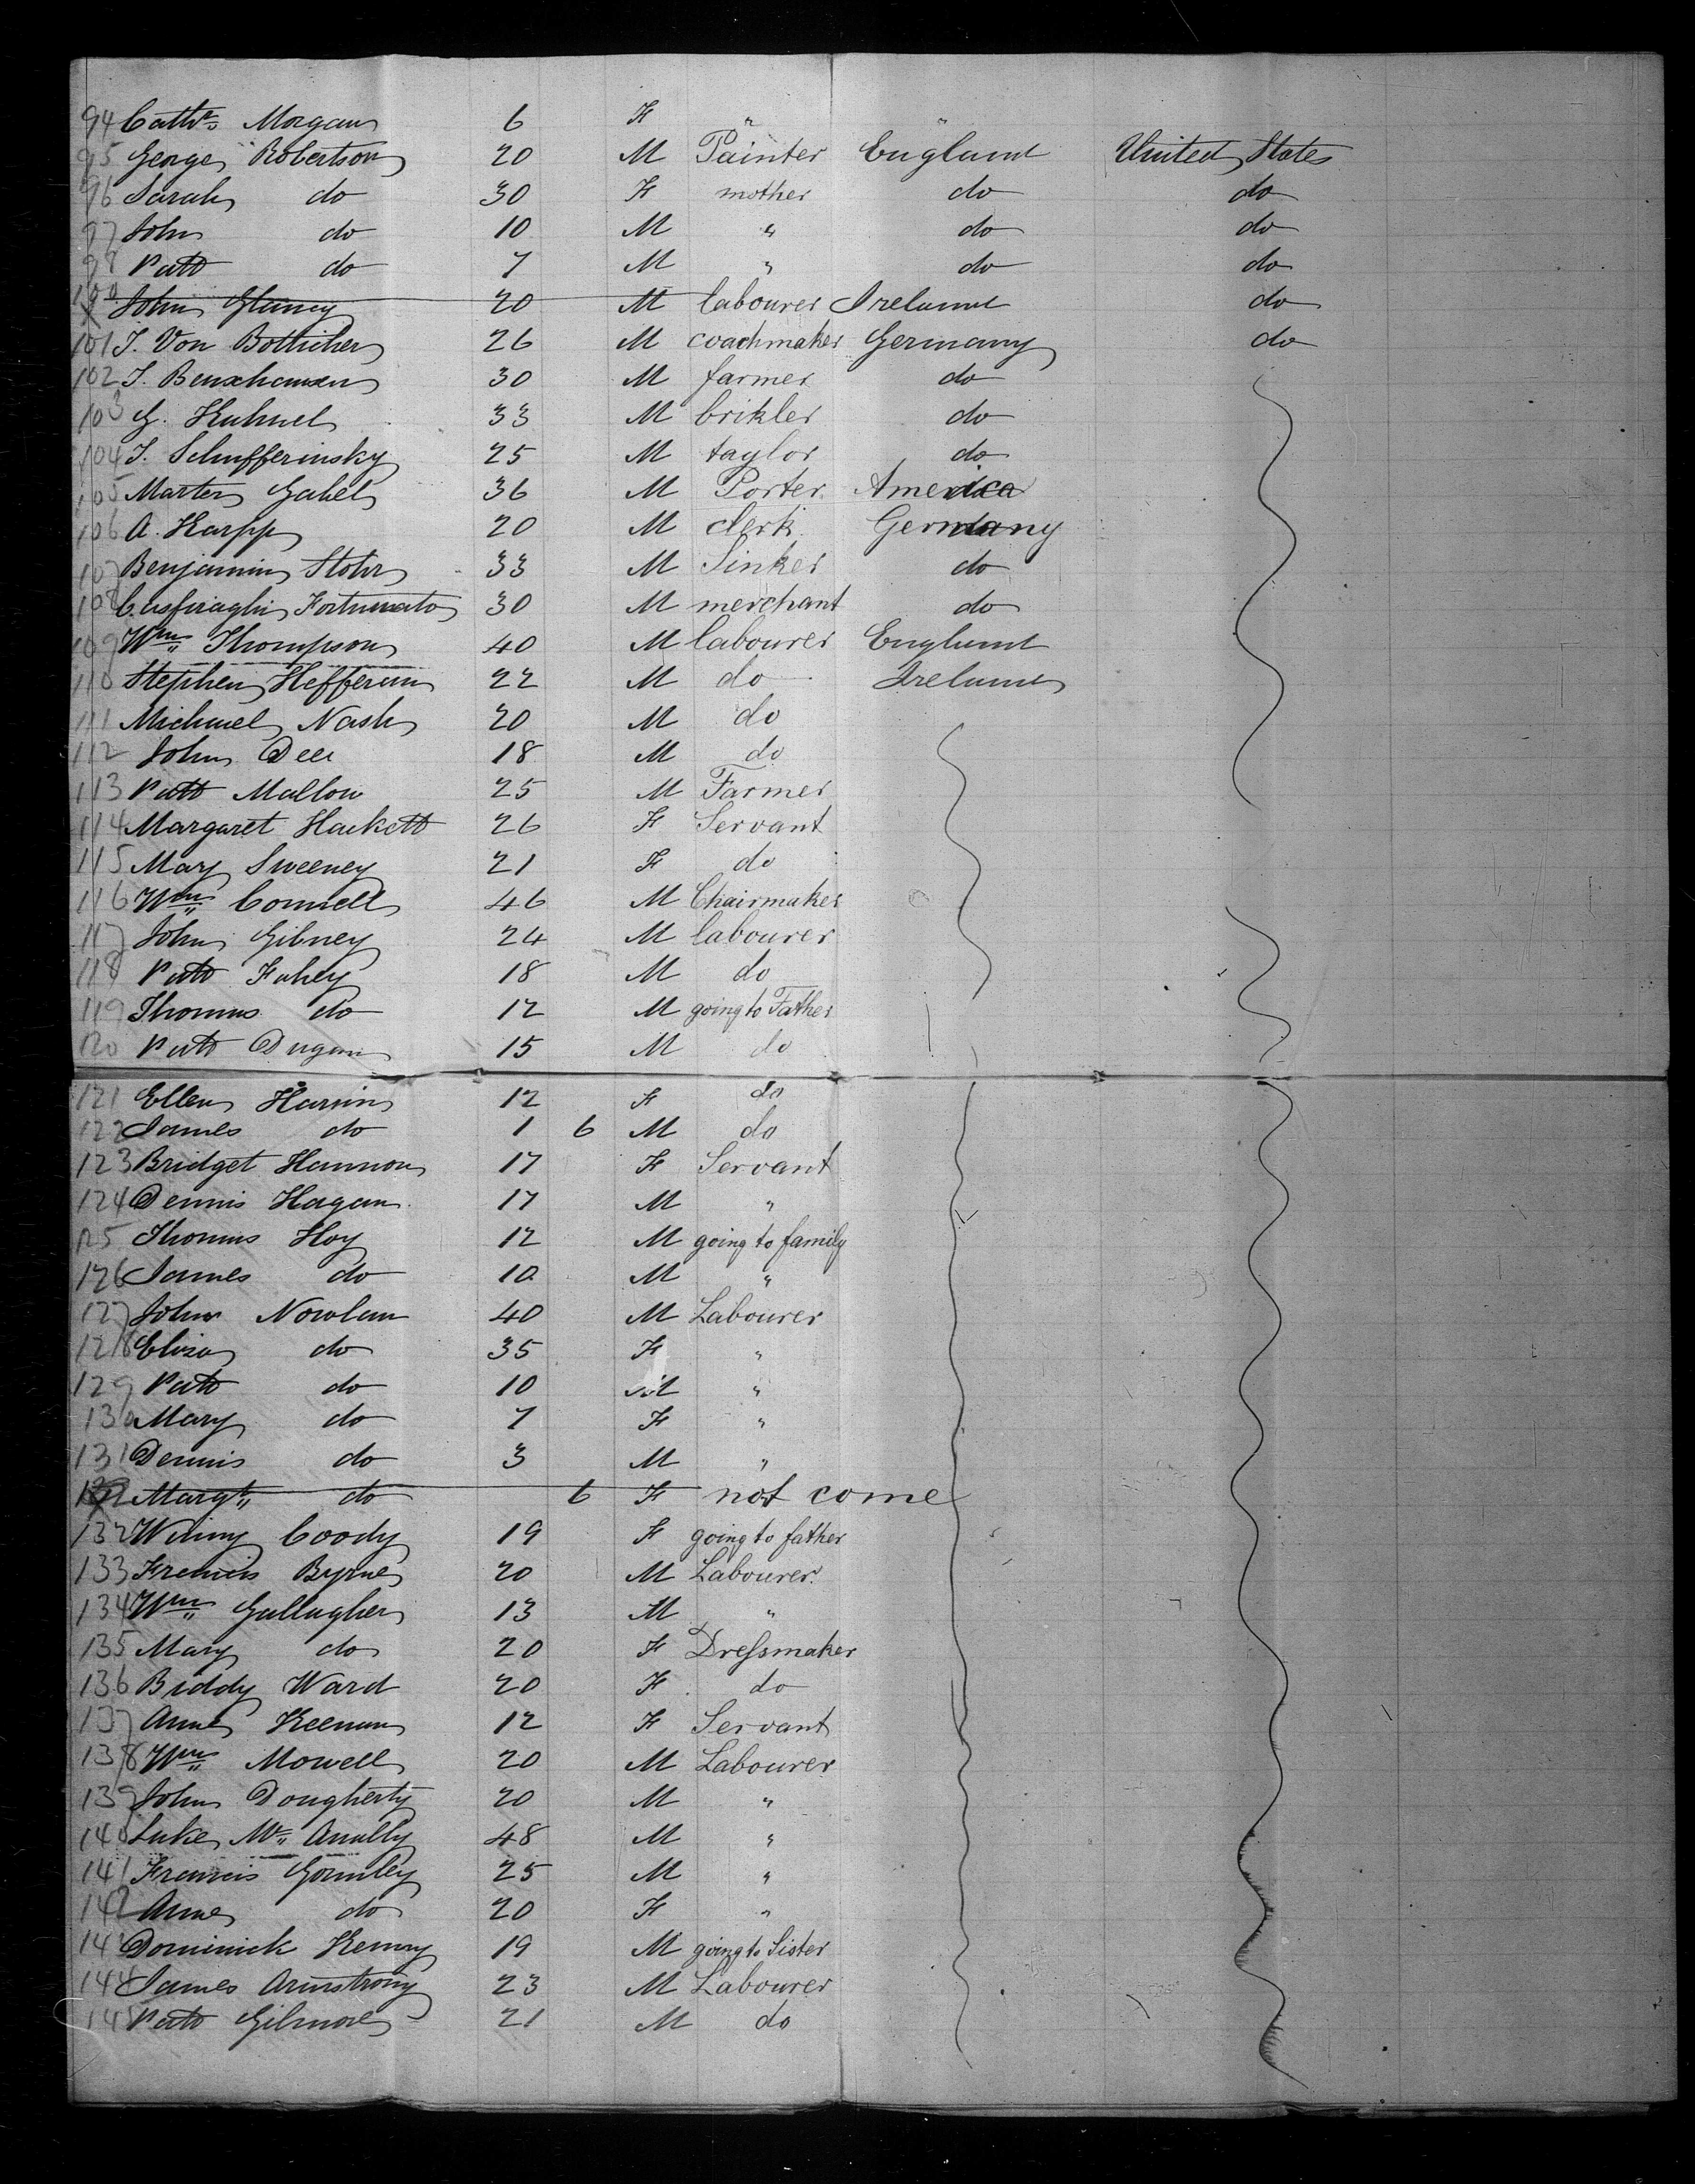 94 Cathe Morgan 6 F " "
95 George Robertson 20 M Painter England United States
96 Sarah do 30 F mother do do
97 John do 10 M " do do
98 Patt do 7 M " do do
John 20 M labourer Ireland do
101 J. Von Botticher 26 M coachmaker Germany do
102 J. 30 M farmer do
103 G. Kuhnel 33 M brikler do
104 J. Schufferinsky 25 M taylor do
105 Marten Gabel 36 M Porter America
106 A. Karpp 20 M clerk Germany
107 Benjamin Stohr 33 M Sinker do
108 Fortunato 30 M merchant do
109 Wm Thompson 40 M labourer England
110 Stephen Hefferan 22 M do Ireland
111 Michael Nash 20 M do
112 John Deer 18 M do
113 Patt Mallow 25 M Farmer
114 Margaret Hackett 26 F Servant
115 Mary Sweeney 21 F do
116 Wm Connell 46 M Chairmaker
117 John Gibney 24 M labourer
118 Patt Fahey 18 M do
119 Thomas do 12 M going to Father
120 Patt Dugan 15 M do
121 Ellen 12 F do
122 James do 1 6 M do
123 Bridget Hannon 17 F Servant
124 Dennis Hagan 17 M "
125 Thomas Hoy 12 M going to family
126 James do 10 M "
127 John Nowlan 40 M Labourer
128 Eliza do 35 F "
129 Patt do 10 M "
130 Mary do 7 F "
131 Dennis do 3 M "
Margt do 6 F not come
132 Winny Coody 19 F going to father
133 Francis Byrne 20 M Labourer
134 Wm Gallagher 13 M "
135 Mary do 20 F Dressmaker
136 Biddy Ward 20 F do
137 Anne Keenan 12 F Servant
138 Wm Mowell 20 M Labourer
139 John Dougherty 20 M "
140 Luke Mc Anully 48 M "
141 Francis Gormley 25 M "
142 Anne do 20 F "
143 Dominick Kenny 19 M going to Sister
144 James Armstrong 23 M Labourer
145 Patt Gilmore 21 M do